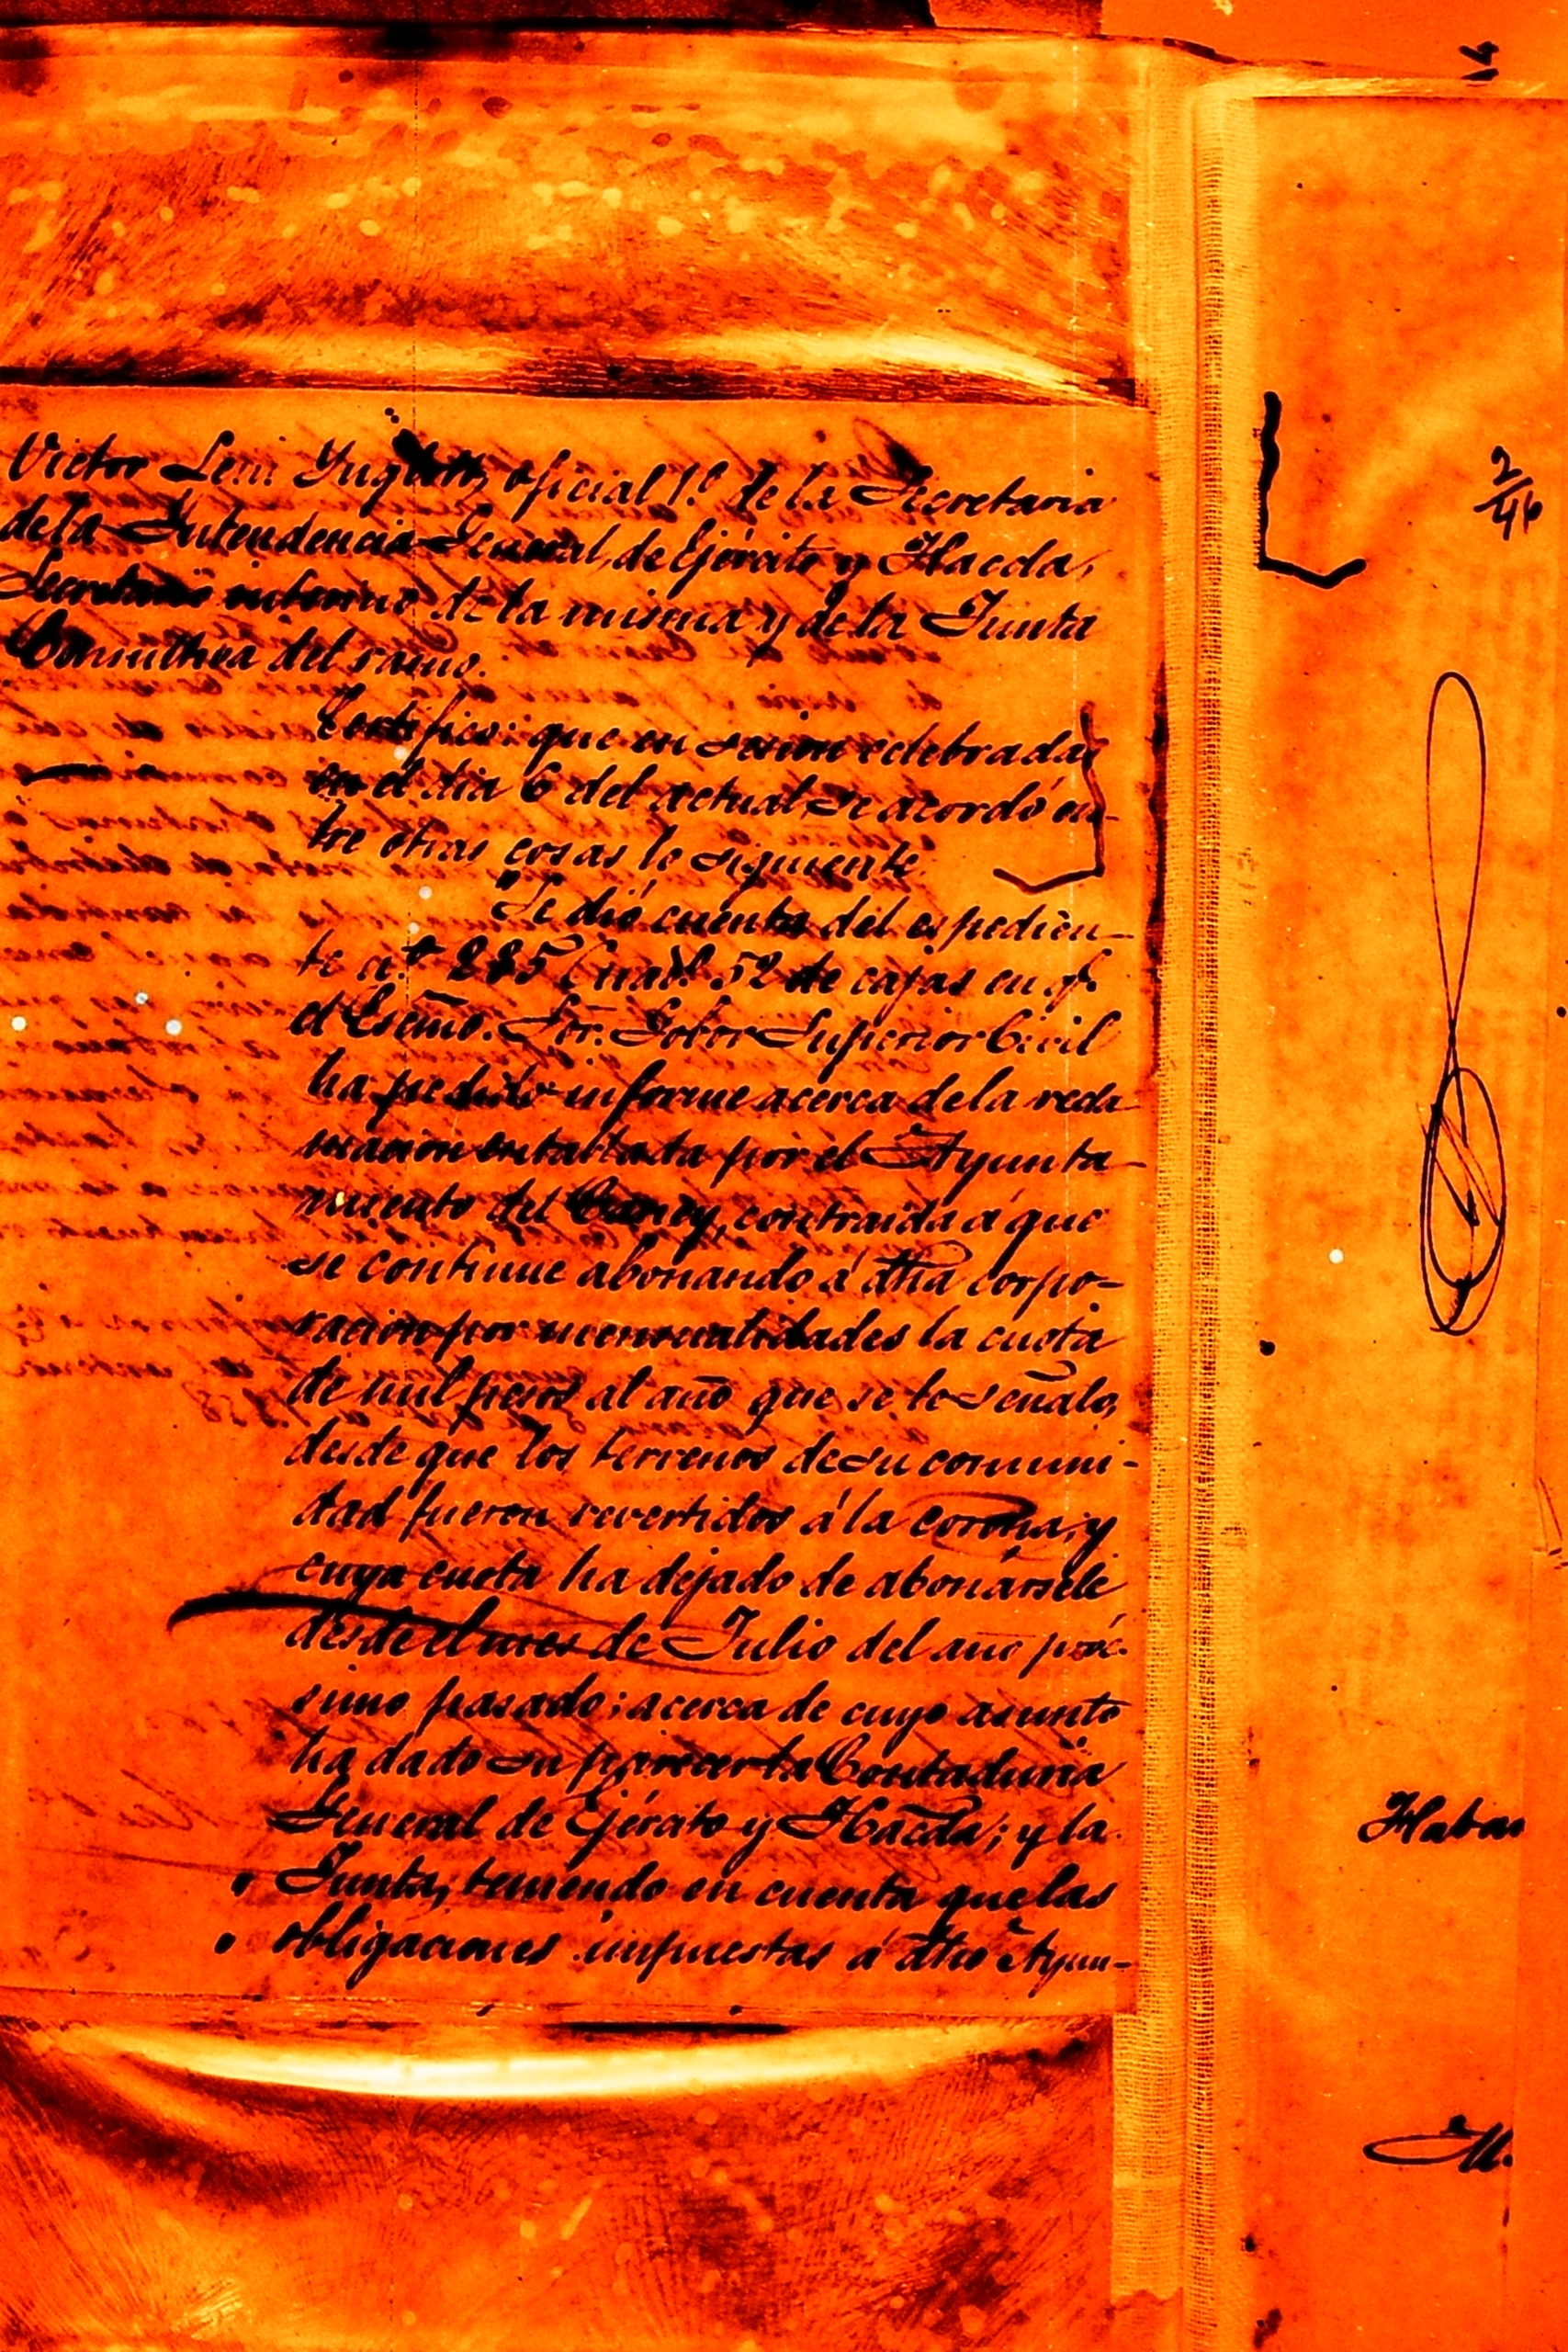 Victor oficial 1º de la Secretaria
de la Intendencia General, de Ejército y Hacda,
Secretario interino de la misma y de la Junta
Consultiva del ramo.
Certifico: que en sesion celebrada
en el dia 6 del actual, se acordó en-
tre otras cosas lo siguiente.
Se dió cuenta del espedien-
te 52 de cajas en q.
el Escmo. Sor. Gobor Superior Civil
ha pedido informe acerca de la recla
macion entablada por el Ayunta-
miento del Caney, contraida á que
se continue abonando á dha corpo-
racion por mensualidades la cuota
de mil pesos al año que se le señaló,
desde que los terrenos de su comuni-
dad fueron revertidos á la corona, y
cuya cuota ha dejado de abonársele
desde el mes de Julio del año proc.
simo pasado; acerca de cuyo asunto
ha dado su parecer la Contaduria
General de Ejército y Hacda; y la
Junta, teniendo en cuenta que las
obligaciones impuestas á dho Ayun-
2/46
Haban
M.